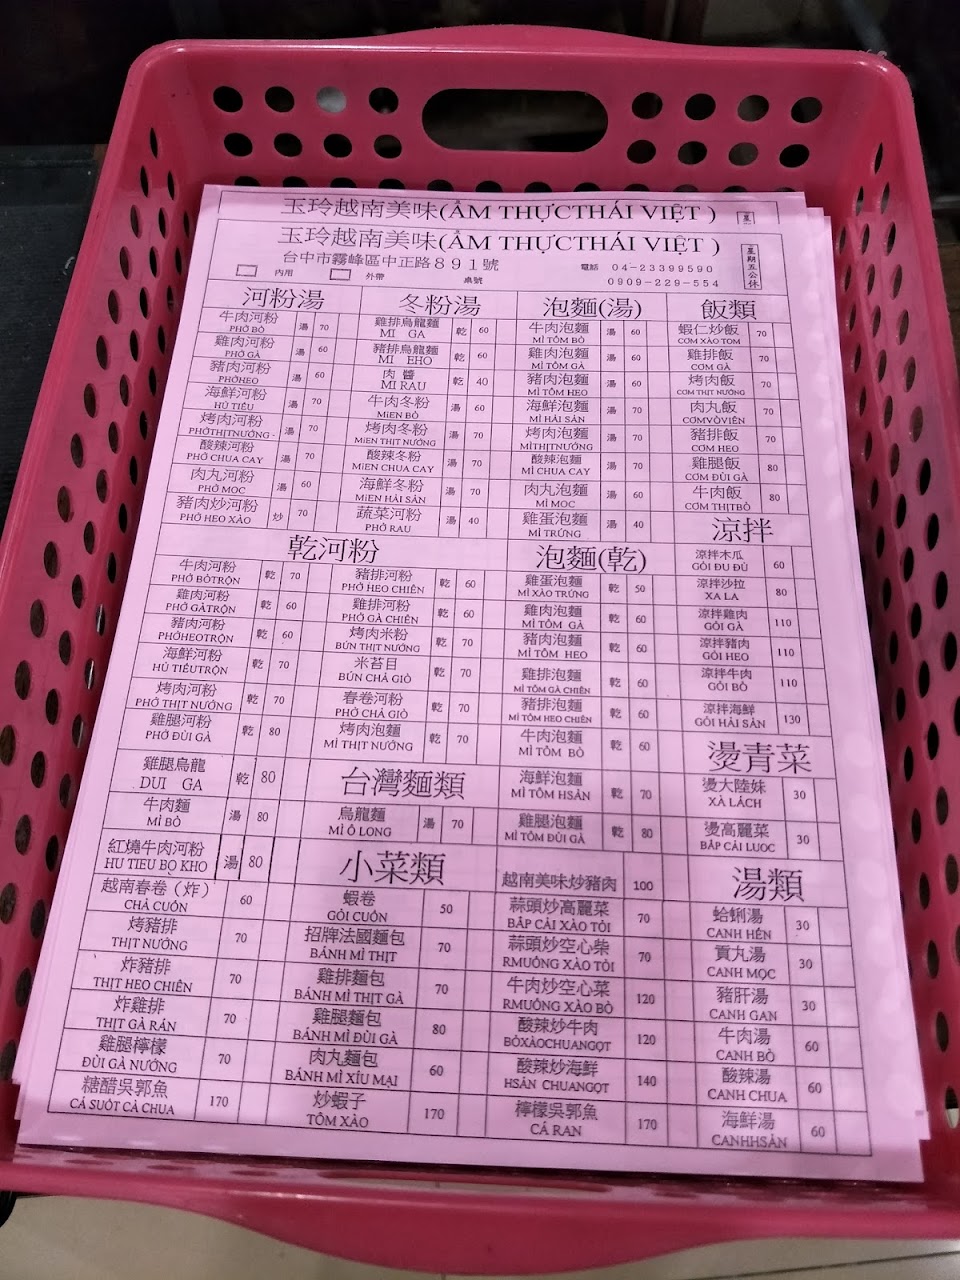 玉玲越南美味(ẨM THỰCTHÁI VIỆT )
玉玲越南美味(ẨM THỰCTHÁI VIỆT )
星期五公休
台中市霧峰區中正路８９１號
電話 04-23399590
0909-229-554
內用 外帶 桌號
河粉湯
牛肉河粉 湯 70
PHỞ BÒ
雞肉河粉 湯 60
PHỞ GÀ
豬肉河粉 湯 60
PHỞHEO
海鮮河粉 湯 70
HỦ TIẾU
烤肉河粉 湯 70
PHỞTHỊTNƯỚNG -
酸辣河粉 湯 70
PHỞ CHUA CAY
肉丸河粉 湯 60
PHỞ MOC
豬肉炒河粉 炒 70
PHỞ HEO XÀO
冬粉湯
雞排烏龍麵 乾 60
MI GA
豬排烏龍麵 乾 60
MI EHO
肉 醬 乾 40
MI RAU
牛肉冬粉 湯 60
MiEN BÒ
烤肉冬粉 湯 70
MiEN THỊT NƯỚNG
酸辣冬粉 湯 70
MiEN CHUA CAY
海鮮冬粉 湯 70
MiEN HẢI SẢN
蔬菜河粉 湯 40
PHỞ RAU
泡麵(湯)
牛肉泡麵 湯 60
MÌ TÔM BÒ
雞肉泡麵 湯 60
MÌ TÔM GÀ
豬肉泡麵 湯 60
MÌ TÔM HEO
海鮮泡麵 湯 70
MÌ HẢI SẢN
烤肉泡麵 湯 70
MÌTHỊTNƯỚNG
酸辣泡麵 湯 70
MÌ CHUA CAY
肉丸泡麵 湯 60
MÌ MOC
雞蛋泡麵 湯 40
MÌ TRỨNG
飯類
蝦仁炒飯 70
CƠM XÀO TOM
雞排飯 70
CƠM GÀ
烤肉飯 70
CƠM THỊT NƯỚNG
肉丸飯 70
CƠMVÒVIÊN
豬排飯 70
CƠM HEO
雞腿飯 80
CƠM ĐÙI GÀ
牛肉飯 80
CƠM THỊTBÒ
涼拌
涼拌木瓜 60
GỎI ĐU ĐỦ
涼拌沙拉 80
XA LA
涼拌雞肉 110
GỎI GÀ
涼拌豬肉 110
GỎI HEO
涼拌牛肉 110
GỎI BÒ
涼拌海鮮 130
GỎI HẢI SẢN
乾河粉
牛肉河粉 乾 70
PHỞ BÒTRỘN
雞肉河粉 乾 60
PHỞ GÀTRỘN
豬肉河粉 乾 60
PHỞHEOTRỘN
海鮮河粉 乾 70
HỦ TIẾUTRỘN
烤肉河粉 乾 70
PHỞ THỊT NƯỚNG
雞腿河粉 乾 80
PHỞ ĐÙI GÀ
雞腿烏龍 乾 80
DUI GA
牛肉麵 湯 80
MÌ BÒ
紅燒牛肉河粉 湯 80
HU TIEU BO KHO
豬排河粉 乾 60
PHỞ HEO CHIÊN
雞排河粉 乾 60
PHỞ GÀ CHIÊN
烤肉米粉 乾 70
BÚN THỊT NƯỚNG
米苔目 乾 70
BÚN CHẢ GIÒ
春卷河粉 乾 70
PHỞ CHẢ GIÒ
烤肉泡麵 乾 70
MÌ THỊT NƯỚNG
台灣麵類
烏龍麵 湯 70
MÌ Ô LONG
泡麵(乾)
雞蛋泡麵 乾 50
MÌ XÀO TRỨNG
雞肉泡麵 乾 60
MÌ TÔM GÀ
豬肉泡麵 乾 60
MÌ TÔM HEO
雞排泡麵 乾 60
MÌ TÔM GÀ CHIÊN
豬排泡麵 乾 60
MÌ TÔM HEO CHIÊN
牛肉泡麵 乾 60
MÌ TÔM BÒ
海鮮泡麵 乾 70
MÌ TÔM HSẢN
雞腿泡麵 乾 80
MÌ TÔM ĐÙI GÀ
燙青菜
燙大陸妹 30
XÀ LÁCH
燙高麗菜 30
BẮP CẢI LUOC
小菜類
越南春卷（炸） 60
CHẢ CUỐN
烤豬排 70
THỊT NƯỚNG
炸豬排 70
THỊT HEO CHIÊN
炸雞排 70
THỊT GÀ RÁN
雞腿檸檬 70
ĐÙI GÀ NƯỚNG
糖醋吳郭魚 170
CÁ SUỐT CÀ CHUA
蝦卷 50
GỎI CUỐN
招牌法國麵包 70
BÁNH MÌ THỊT
雞排麵包 70
BÁNH MÌ THỊT GÀ
雞腿麵包 80
BÁNH MÌ ĐÙI GÀ
肉丸麵包 60
BÁNH MÌ XÍU MẠI
炒蝦子 170
TÔM XÀO
越南美味炒豬肉 100
蒜頭炒高麗菜 70
BẮP CẢI XÀO TỎI
蒜頭炒空心柴 70
RMUỐNG XÀO TỎI
牛肉炒空心菜 120
RMUỐNG XÀO BÒ
酸辣炒牛肉 120
BÒXÀOCHUANGỌT
酸辣炒海鮮 140
HSẢN CHUANGỌT
檸檬吳郭魚 170
CÁ RAN
湯類
蛤蜊湯 30
CANH HẾN
貢丸湯 30
CANH MỌC
豬肝湯 30
CANH GAN
牛肉湯 60
CANH BÒ
酸辣湯 60
CANH CHUA
海鮮湯 60
CANHHSẢN